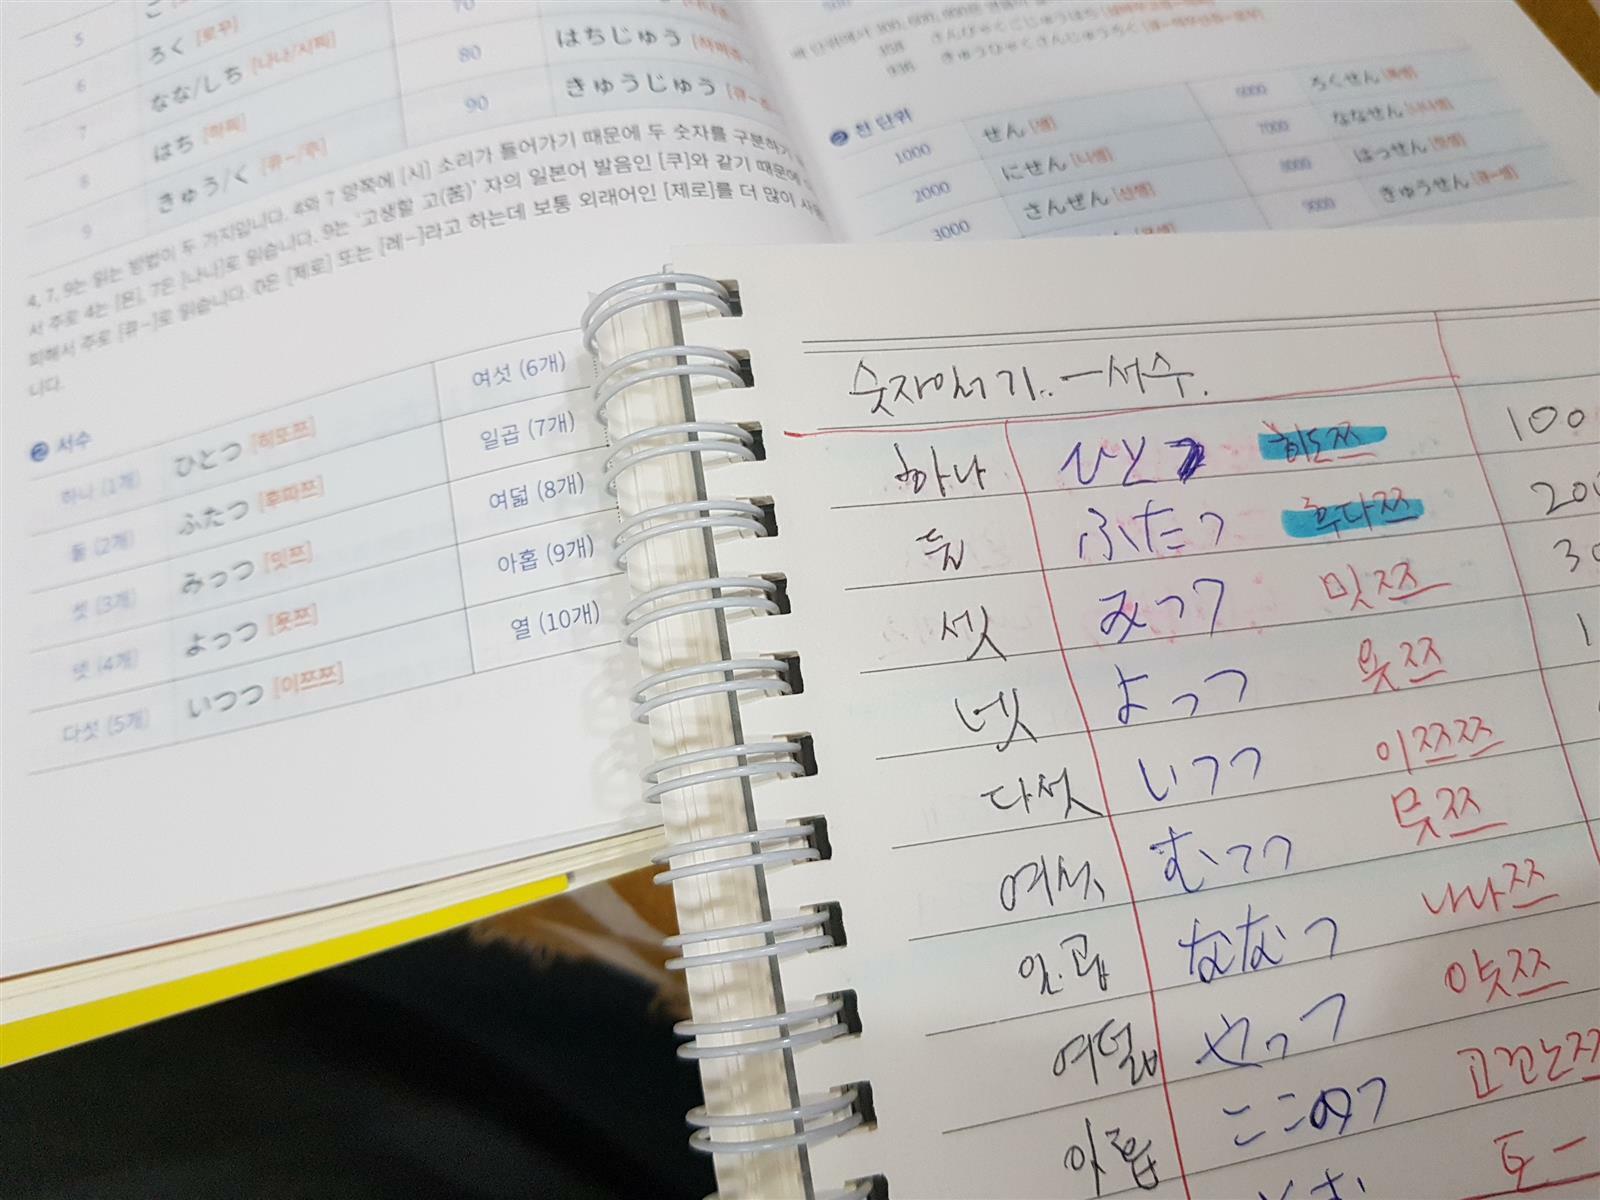 5
6 ろく [로꾸]
7 なな/しち [나나/시찌]
8 はち [하찌]
9 きゅう/く [큐-/쿠]
70
80 はちじゅう
90 きゅうじゅう
4, 7, 9는 읽는 방법이 두 가지입니다. 4와 7 양쪽에 [시] 소리가 들어가기 때문에 두 숫자를 구분하기
서 주로 4는 [욘], 7은 [나나]로 읽습니다. 9는 '고생할 고(苦)' 자의 일본어 발음인 [쿠]와 같기 때문에
피해서 주로 [큐-]로 읽습니다. 0은 [제로] 또는 [레-]라고 하는데 보통 외래어인 [제로]를 더 많이
니다.
2 서수
하나 (1개) ひとつ [히또쯔] 여섯 (6개)
둘 (2개) ふたつ [후따쯔] 일곱 (7개)
셋 (3개) みっつ [밋쯔] 여덟 (8개)
넷 (4개) よっつ [욧쯔] 아홉 (9개)
다섯 (5개) いつつ [이쯔쯔] 열 (10개)
358 さんびゃくごじゅうはち
936 きゅうひゃくさんじゅうろく
천 단위
1000 せん [셍] 6000 ろくせん
2000 にせん [니셍] 7000 ななせん
3000 さんぜん [산젱] 8000 はっせん
9000 きゅうせん
숫자읽기..-서수.
하나 ひとつ 히도쯔 100
둘 ふたつ 후다쯔
셋 みっつ 밋쯔
넷 よっつ 욧쯔
다섯 いつつ 이쯔쯔
여섯 むっつ 뭇쯔
일곱 ななつ 나나쯔
여덟 やっつ 얏쯔
아홉 ここのつ 고꼬노쯔